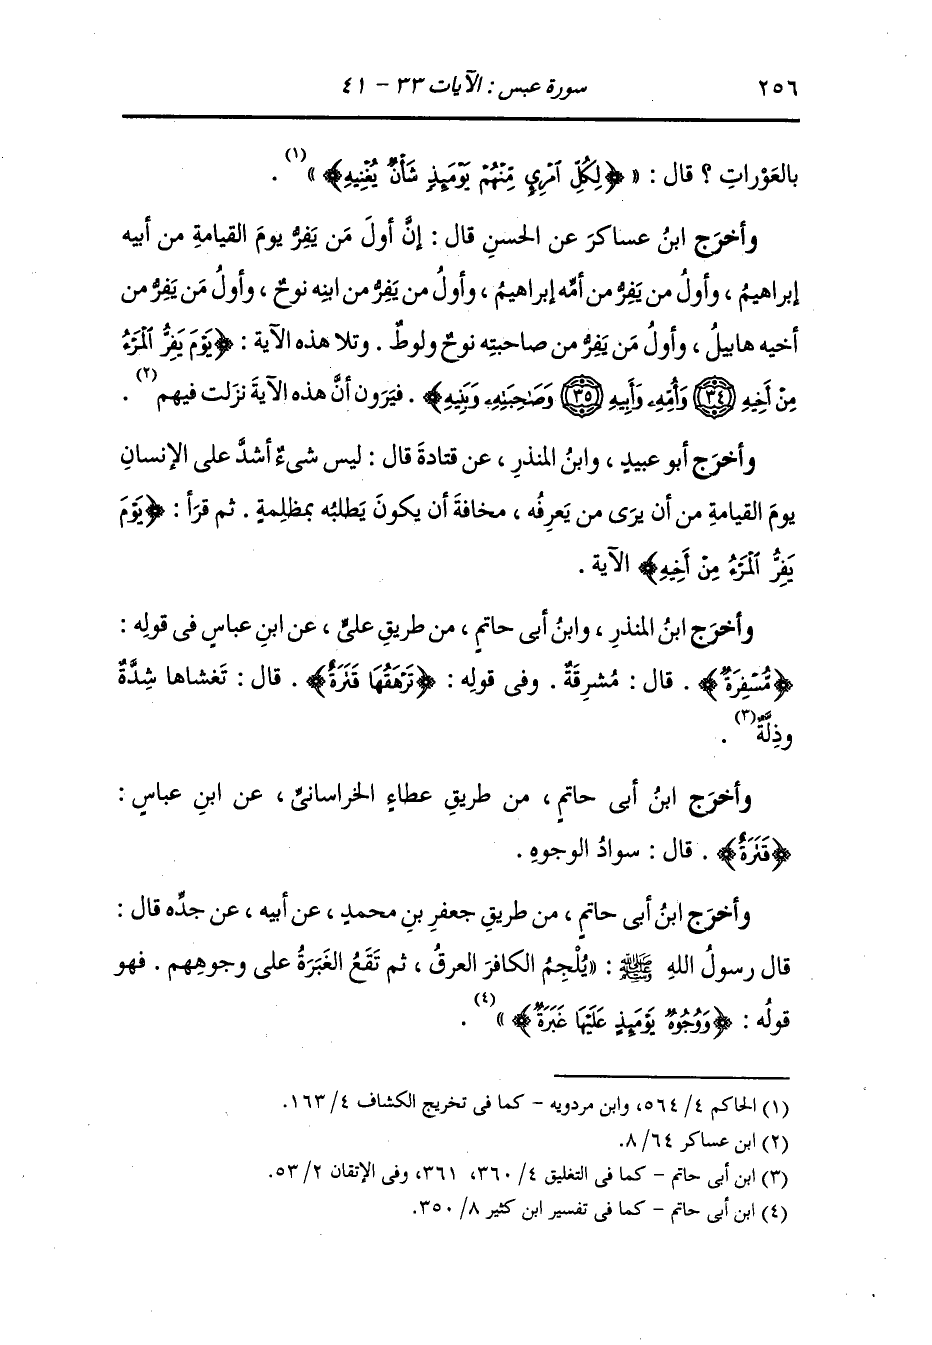 ٢٥٦ سورة عبس : الآيات ٣٣ - ٤١
بالعَوْراتِ ؟ قال : « ﴿لِكُلِّ ٱمْرِيٕ مِّنْهُمْ يَوْمَئِذٍ شَأْنٌ يُغْنِيهِ﴾ »(١) .
وأخرَج ابنُ عساكرَ عن الحسنِ قال : إنَّ أولَ مَن يَفِرُّ يومَ القيامةِ من أبيه
إبراهيمُ ، وأولُ من يَفِرُّ من أمِّه إبراهيمُ ، وأولُ من يَفِرُّ من ابنِه نوحٌ ، وأولُ مَن يَفِرُّ من
أخيه هابيلُ ، وأولُ مَن يَفِرُّ من صاحبتِه نوحٌ ولوطٌ . وتلا هذه الآيةَ : ﴿يَوْمَ يَفِرُّ ٱلْمَرْءُ
مِنْ أَخِيهِ (٣٤) وَأُمِّهِۦ وَأَبِيهِ (٣٥) وَصَٰحِبَتِهِۦ وَبَنِيهِ﴾ . فيَرَون أنَّ هذه الآيةَ نزَلت فيهم(٢) .
وأخرَج أبو عبيدٍ ، وابنُ المنذرِ ، عن قتادةَ قال : ليس شىءٌ أشدَّ على الإنسانِ
يومَ القيامةِ من أن يرَى من يَعرِفُه ، مخافةَ أن يكونَ يَطلبُه بمظلِمةٍ . ثم قرَأ : ﴿يَوْمَ
يَفِرُّ ٱلْمَرْءُ مِنْ أَخِيهِ﴾ الآيةَ .
وأخرَج ابنُ المنذرِ ، وابنُ أبى حاتمٍ ، من طريقِ علىٍّ ، عن ابنِ عباسٍ فى قولِه :
﴿مُّسْفِرَةٌ﴾ . قال : مُشرِقةٌ . وفى قولِه : ﴿تَرْهَقُهَا قَتَرَةٌ﴾ . قال : تَغشاها شِدَّةٌ
وذِلَّةٌ(٣) .
وأخرَج ابنُ أبى حاتمٍ ، من طريقِ عطاءٍ الخراسانىِّ ، عن ابنِ عباسٍ :
﴿قَتَرَةٌ﴾ . قال : سوادُ الوجوهِ .
وأخرَج ابنُ أبى حاتمٍ ، من طريقِ جعفرِ بنِ محمدٍ ، عن أبيه ، عن جدِّه قال :
قال رسولُ اللهِ ﷺ : «يُلْجِمُ الكافرَ العرقُ ، ثم تَقَعُ الغَبَرَةُ على وجوهِهم . فهو
قولُه : ﴿وَوُجُوهٌ يَوْمَئِذٍ عَلَيْهَا غَبَرَةٌ﴾ »(٤) .
(١) الحاكم ٤/ ٥٦٤، وابن مردويه - كما فى تخريج الكشاف ٤/ ١٦٣.
(٢) ابن عساكر ٦٤/ ٨.
(٣) ابن أبى حاتم - كما فى التغليق ٤/ ٣٦٠، ٣٦١، وفى الإتقان ٢/ ٥٣.
(٤) ابن أبى حاتم - كما فى تفسير ابن كثير ٨/ ٣٥٠.